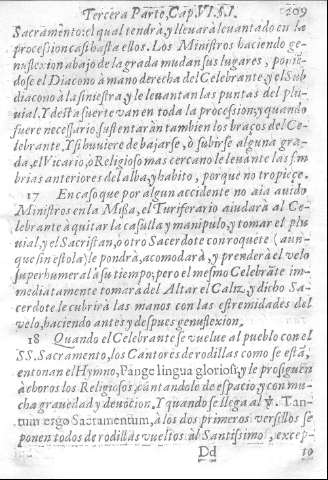 Tercera Parte, Cap. VI. §. I. 209
Sacramẽnto: el qual tendrà, y lleuarà leuantado en la
procession casi hasta ellos. Los Ministros haziendo ge-
nuflexion abajo de la grada mudan sus lugares, poniẽ-
dose el Diacono à mano derecha del Celebrante, y el Sub
diacono à la siniestra, y le leuantan las puntas del plu-
uial. Y desta suerte van en toda la procession; y quando
fuere necessario, sustentaràn tambien los braços del Ce-
lebrante. Y si huuiere de bajarse, ò subirse alguna gra-
da, el Vicario, ò Religioso mas cercano le leuante las fim
brias anteriores del alba, y habito, porque no tropiece.
17 En caso que por algun accidente no aia auido
Ministros en la Missa, el Turiferario aiudarà al Ce-
lebrante à quitar la casulla y manipulo, y tomar el plu
uial, y el Sacristan, ò otro Sacerdote con roquete (aun-
que sin estola) le pondrà, acomodarà, y prenderà el velo
superhumeral à su tiempo; pero el mesmo Celebrãte im-
mediatamente tomarà del Altar el Caliz, y dicho Sa-
cerdote le cubrirà las manos con las estremidades del
velo, haciendo antes y despues genuflexion.
18 Quando el Celebrante se vuelue al pueblo con el
SS. Sacramento, los Cantores de rodillas como se estã,
entonan el Hymno, Pange lingua gloriosi; y le prosiguen
à choros los Religiosos, cantandole de espacio, y con mu-
cha grauedad y deuocion. Y quando se llega al ℣. Tan-
tum ergo Sacramentum, à los dos primeros versillos se
ponen todos de rodillas vueltos al Santissimo, excep-
Dd to